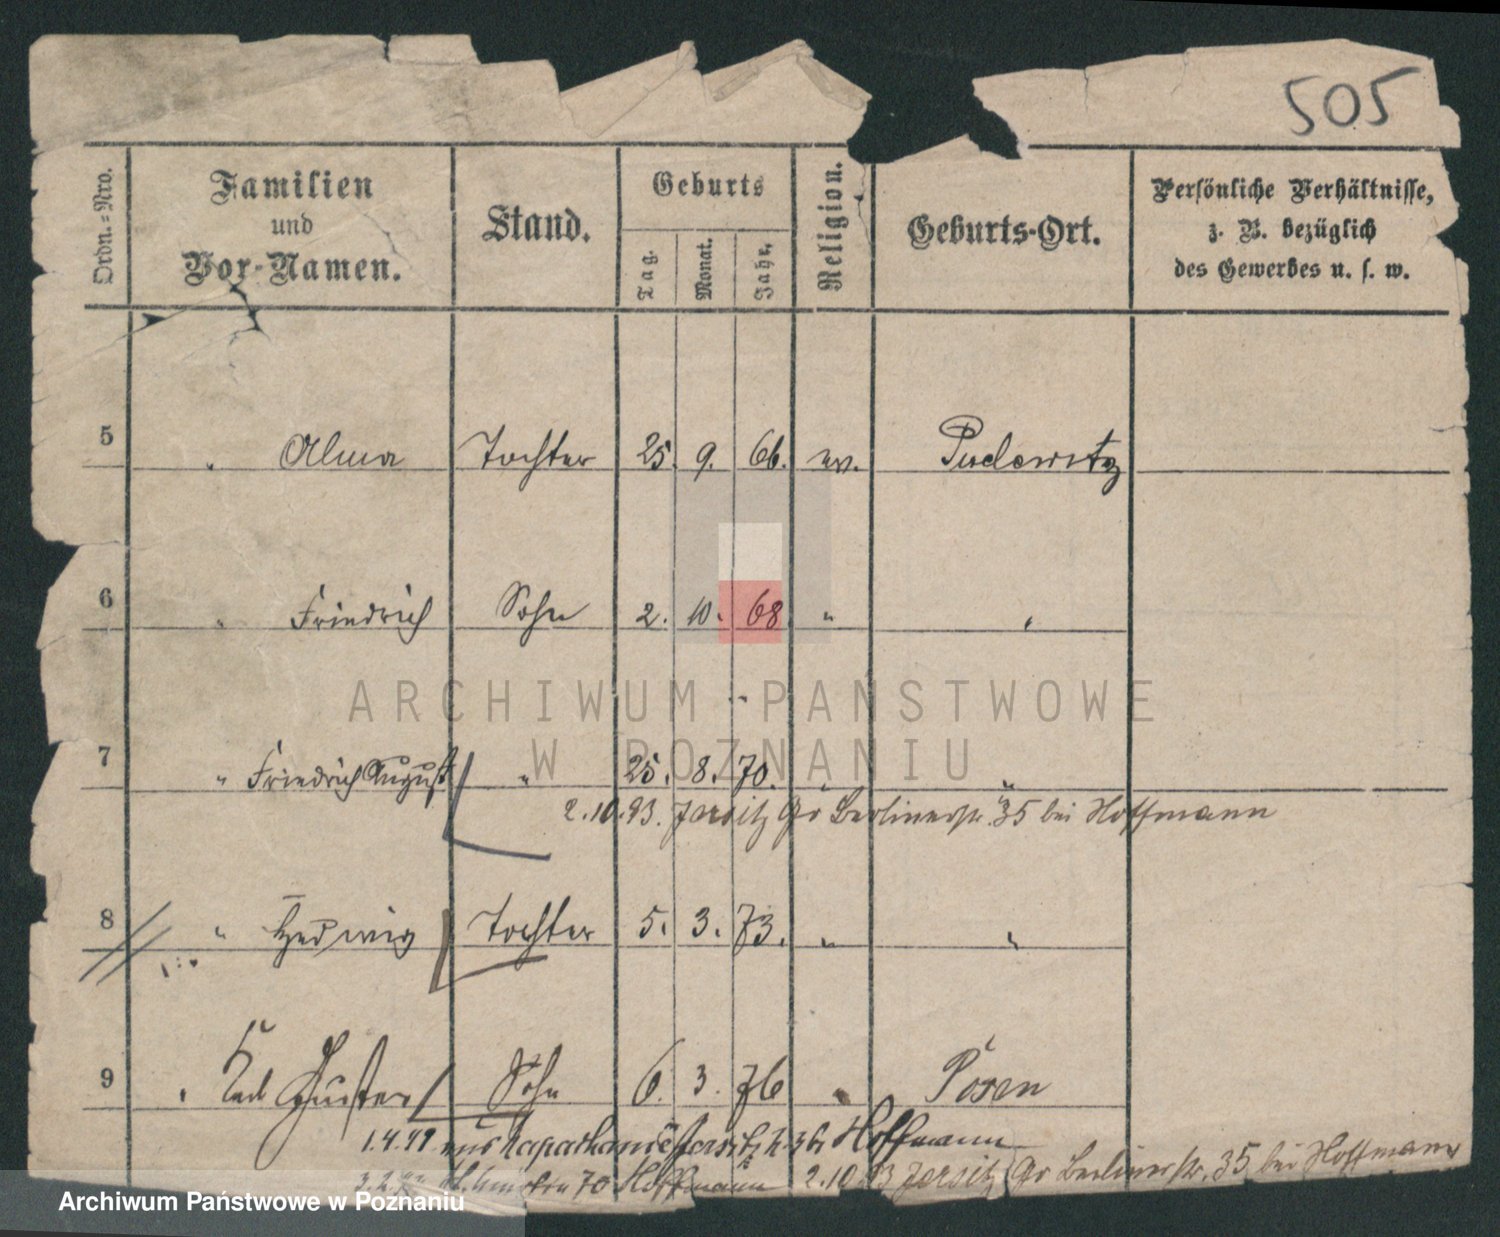 505
Ordn.=Nro.
Familien
und
Vor-Namen.
Stand.
Geburts
Tag.
Monat.
Jahr.
Religion.
Geburts-Ort.
Persönliche Verhältnisse,
z. B. bezüglich
des Gewerbes u. s. w.
5 " Alma Tochter 25. 9. 66. ev. Pudewitz
6 " Friedrich Sohn 2. 10. 68 " "
ARCHIWUM PAŃSTWOWE
W POZNANIU
7 " Friedrich August " 25. 8. 70. "
2.10.93. Jersitz Gr Berlinerstr. 35 bei Hoffmann
8 " Hedwig Tochter 5. 3. 73. " "
9 " Karl Gustav Sohn 6. 3. 76 " Posen
1.4.91 aus Jersitz Hoffmann
70 Hoffmann 2.10.93 Jersitz Gr Berlinerstr. 35 bei Hoffmann
Archiwum Państwowe w Poznaniu